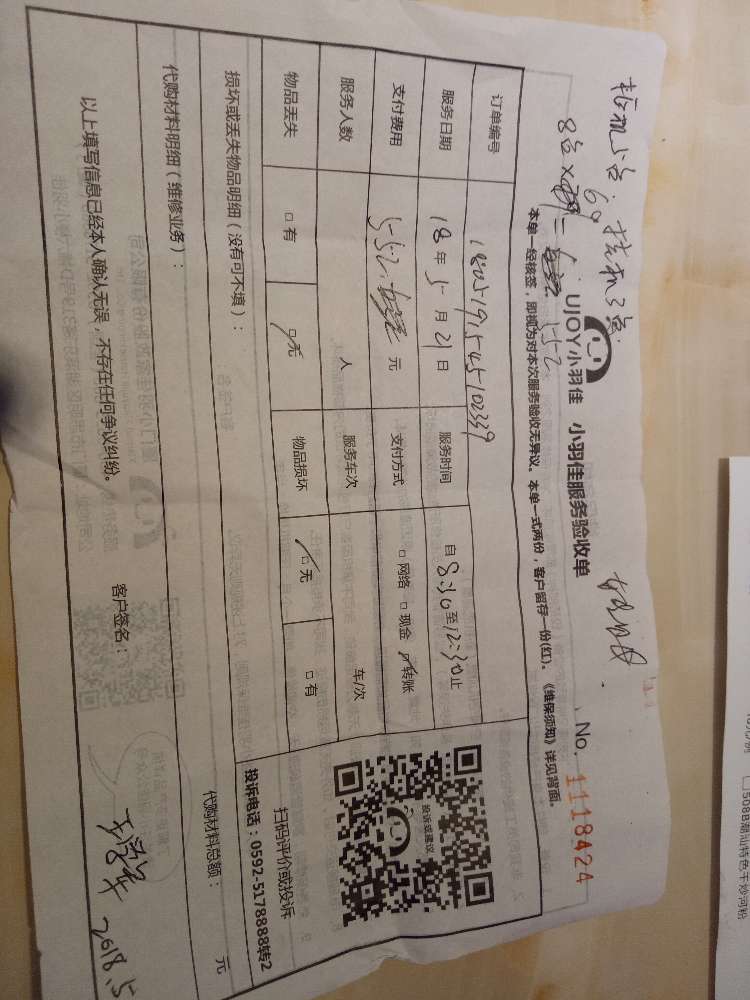 8台
UJOY小羽佳 小羽佳服务验收单
No. 1118424
本单一经核签，即视为对本次服务验收无异议。本单一式两份，客户留存一份(红)。《维保须知》详见背面。
订单编号
服务日期 18年5月21日 服务时间 自8:30至12:30止
支付费用 552 元 支付方式 □网络 □现金 ☑转账
服务人数 人 服务车次 车/次
物品丢失 □有 ☑无 物品损坏 ☑无 □有
投诉或建议
扫码评价或投诉
投诉电话：0592-5178888转2
损坏或丢失物品明细（没有可不填）：
代购材料明细（维修业务）： 代购材料总额： 元
以上填写信息已经本人确认无误，不存在任何争议纠纷。 客户签名： 2018.5
□508B潮汕特色干炒河粉